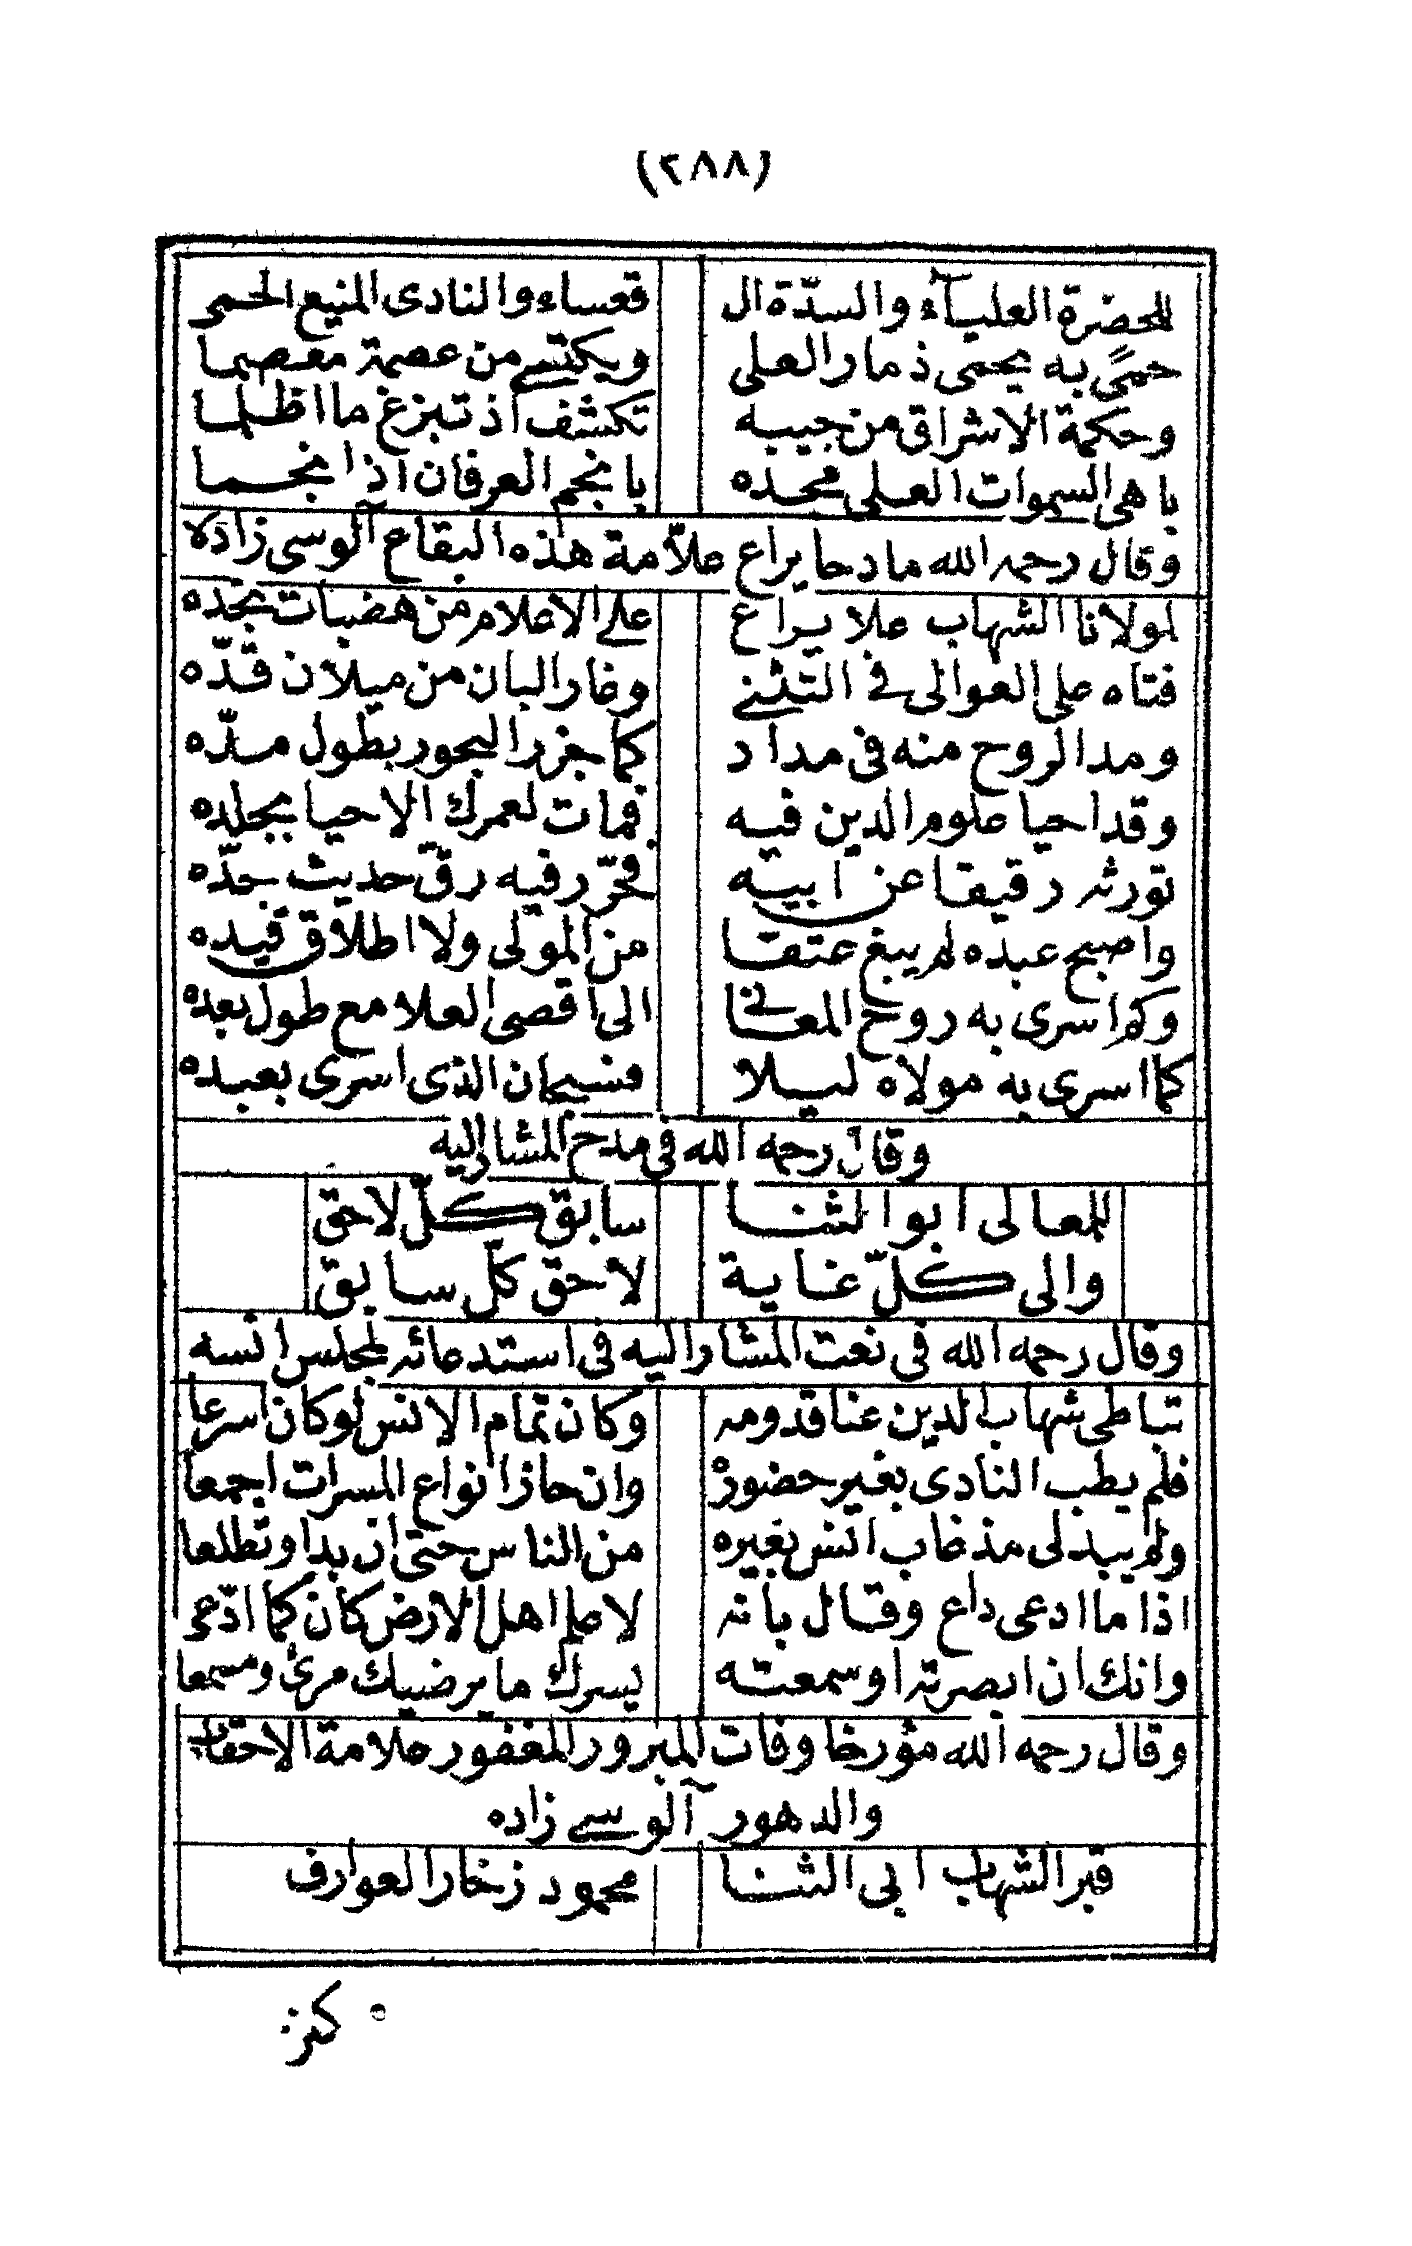 (٢٨٨)
للحضرة العلياء والسدّة ال قعساء والنادى المنيع الحمى
حمىً به يحمى ذمار العلى ويكتسى من عصمة معصما
وحكمة الاشراق من جيبه تكشف اذ تبزغ ما اظلما
باهى السموات العلى مجده يا نجم العرفان اذا نجما
وقال رحمه الله مادحا يراع علاّمة هذه البقاع آلوسى زاده
لمولانا الشهاب علا يراع على الاعلام من هضبات نجده
فتاه على العوالى فى التثنى وغار البان من ميلان قدّه
ومد الروح منه فى مداد كما جزر البحور بطول مدّه
وقد احيا علوم الدين فيه فمات لعمرك الاحيا بجلده
تورثه رقيقا عن ابيه فحرّر فيه رقّ حديث جدّه
واصبح عبده لم يبغ عتقا من المولى ولا اطلاق قيده
وكم اسرى به روح المعانى الى اقصى العلا مع طول بعده
كما اسرى به مولاه ليلا فسبحان الذى اسرى بعبده
وقال رحمه الله فى مدح المشار اليه
للمعالى ابو الثنا سابق كلّ لاحق
والى كلّ غاية لاحق كلّ سابق
وقال رحمه الله فى نعت المشار اليه فى استدعائه لمجلس انسه
تباطى شهاب الدين عنا قدومه وكان تمام الانس لو كان اسرعا
فلم يطب النادى بغير حضوره وان حاز انواع المسرات اجمعا
ولم يبد لى مذ غاب انس بغيره من الناس حتى ان بدا وتطلعا
اذا ما ادعى داع وقال بانه لاعلى اهل الارض كان كما ادّعى
وانك ان ابصرته او سمعته يسرك ما يرضيك مرئ ومسمعا
وقال رحمه الله مؤرخا وفات المبرور المغفور علامة الاحقاب
والدهور آلوسى زاده
قبر الشهاب ابى الثنا محمود زخار العوارف
كنز